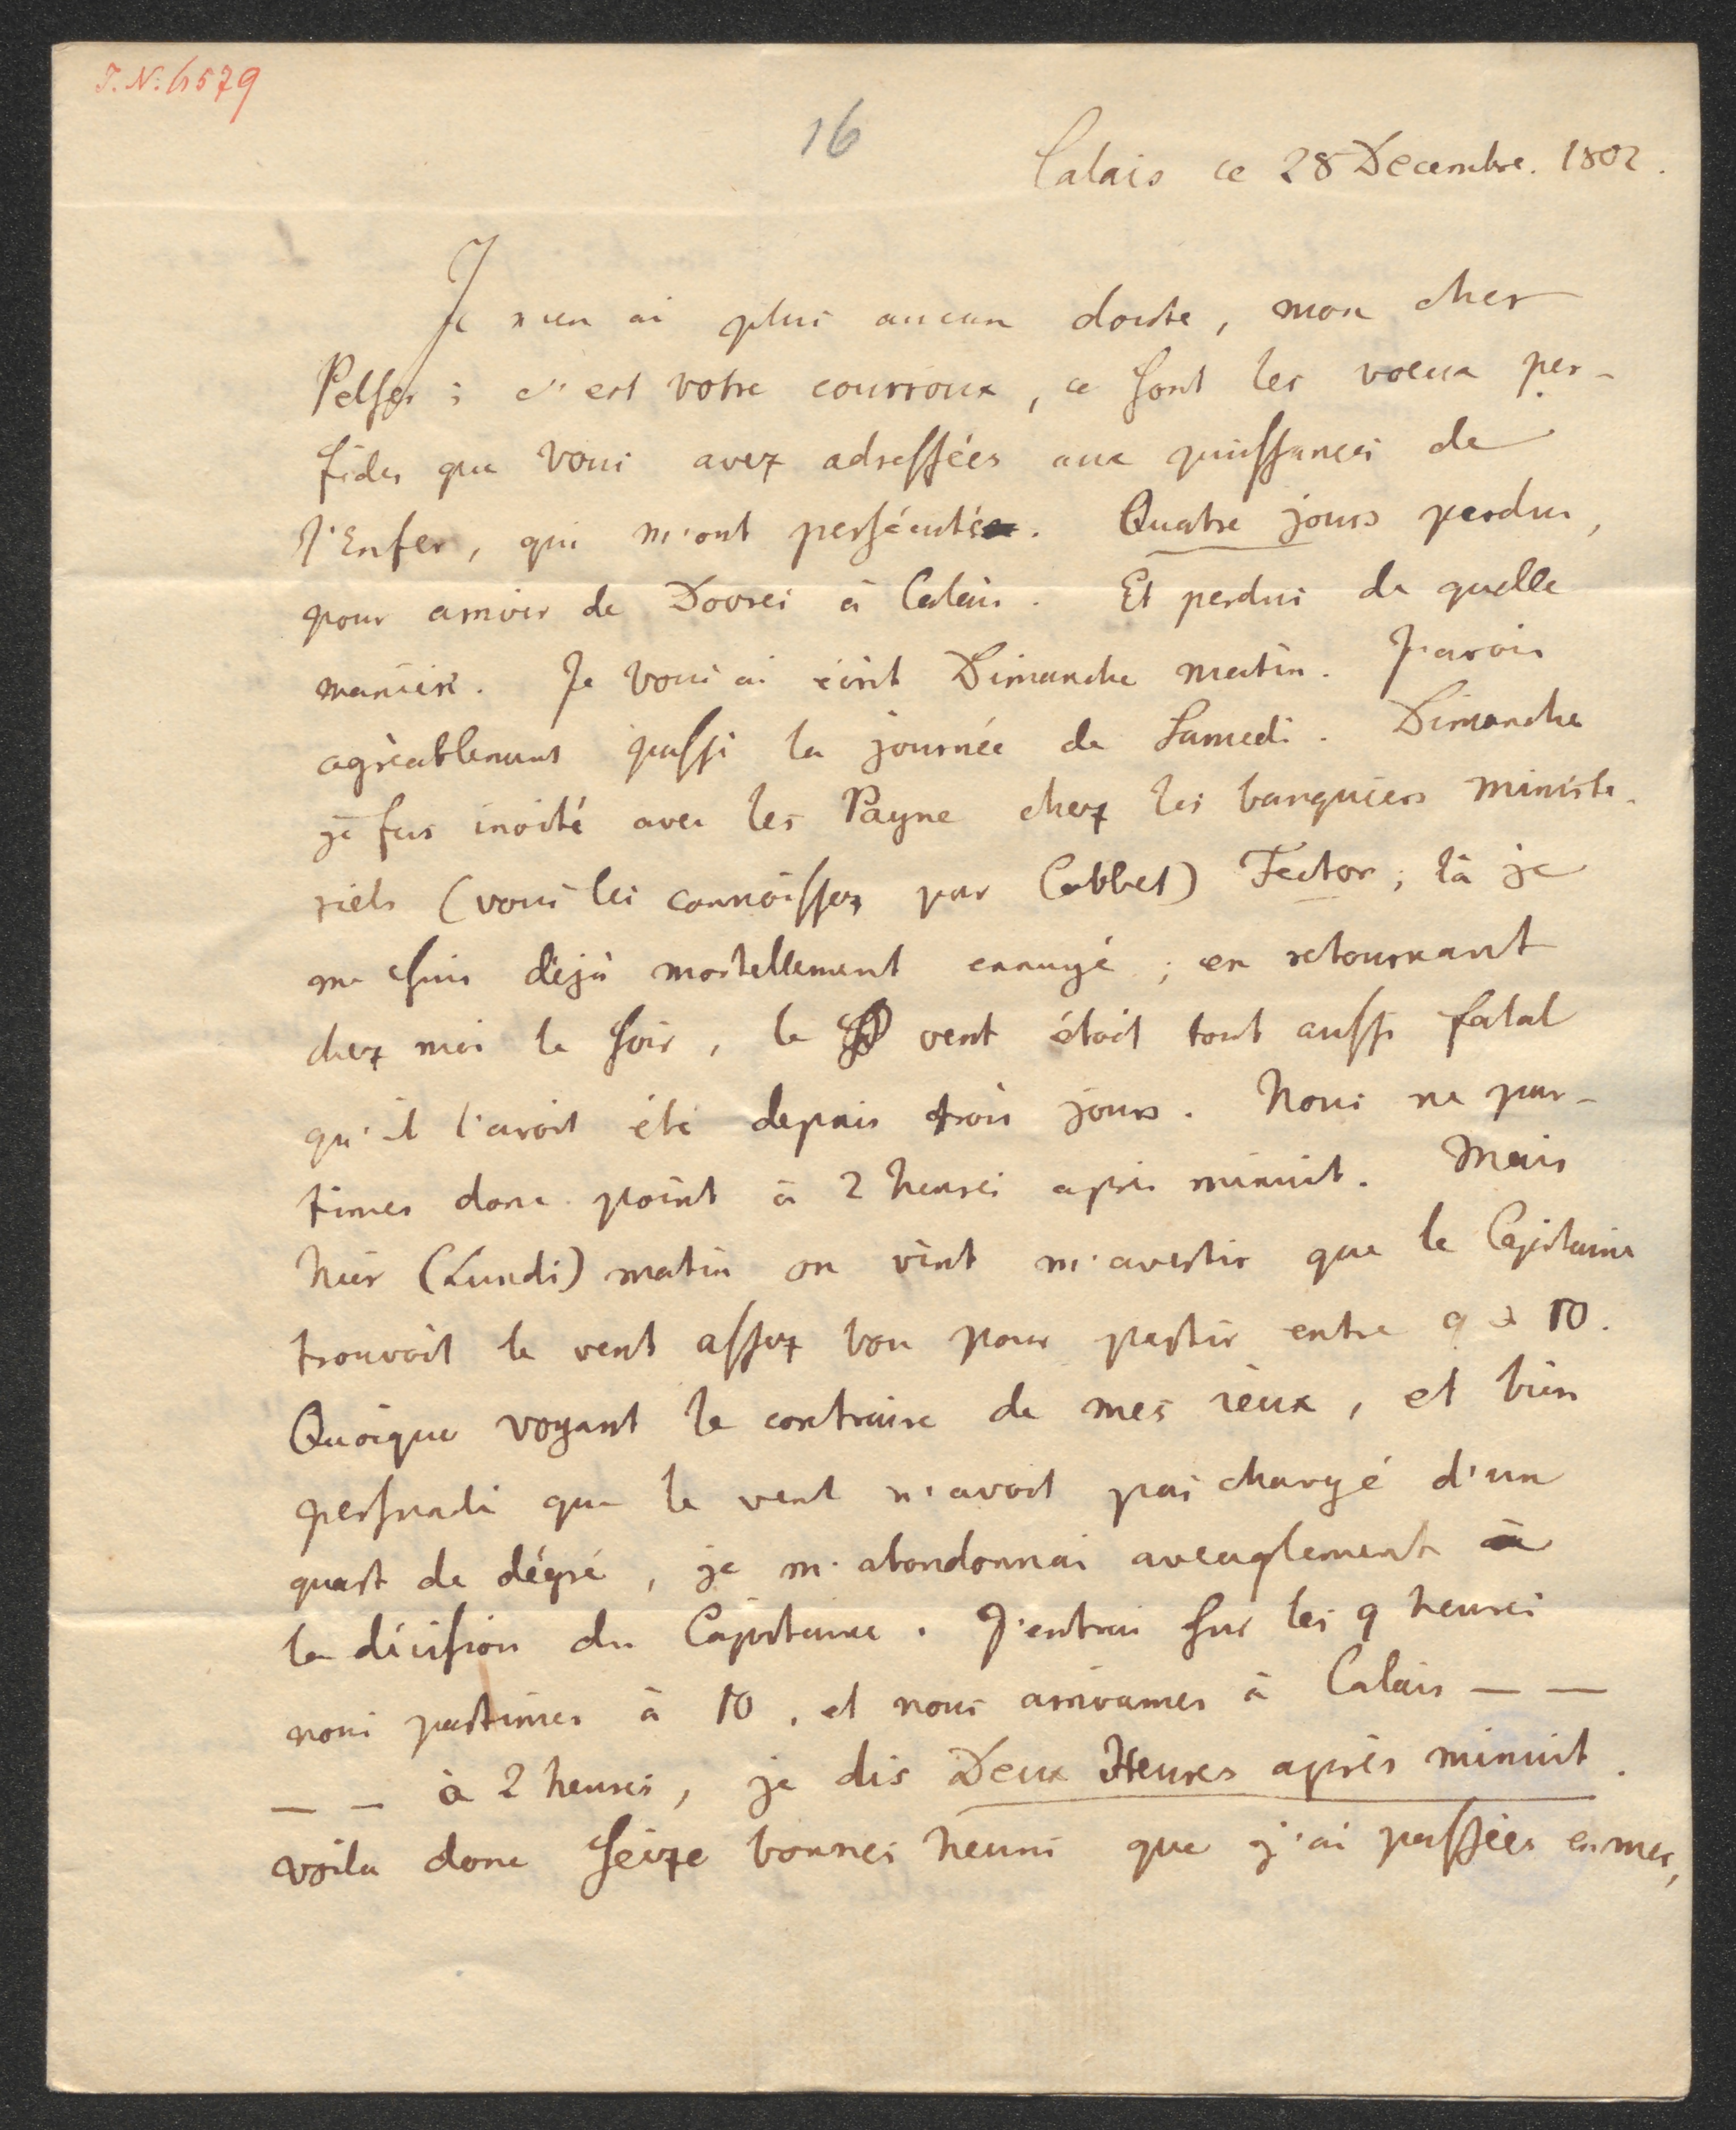 I. N. 6579
16
Calais ce 28 Decembre. 1802.
Je n'en ai plus aucun doute, mon cher
Pelser; c'est votre courroux, ce sont les voeux per-
fides que vous avez adressées aux puissances de
l'Enfer, qui m'ont persécuté. Quatre jours perdus,
pour arriver de Dovres à Calais. Et perdus de quelle
manière. Je vous ai écrit Dimanche matin. J'avois
agréablement passé la journée de Samedi. Dimanche
je fus invité avec les Payne chez les banquiers ministe-
riels (vous les connoissez par Cobbet) Fector; là je
me suis déjà mortellement ennuyé; en retournant
chez moi le soir, le vent étoit tout aussi fatal
qu'il l'avoit été depuis trois jours. Nous ne par-
times donc point à 2 heures après minuit. Mais
hier (Lundi) matin on vint m'avertir que le Capitaine
trouvoit le vent assez bon pour partir entre 9 & 10.
Quoique voyant le contraire de mes ieux, et bien
persuadé que le vent n'avoit pas changé d'un
quart de dégré, je m'abandonnai aveuglement à
la décision du Capitaine. J'entrai sur les 9 heures
nous partimes à 10, et nous arrivames à Calais — —
— — à 2 heures, je dis Deux Heures après minuit.
voila donc seize bonnes heures que j'ai passées en mer,